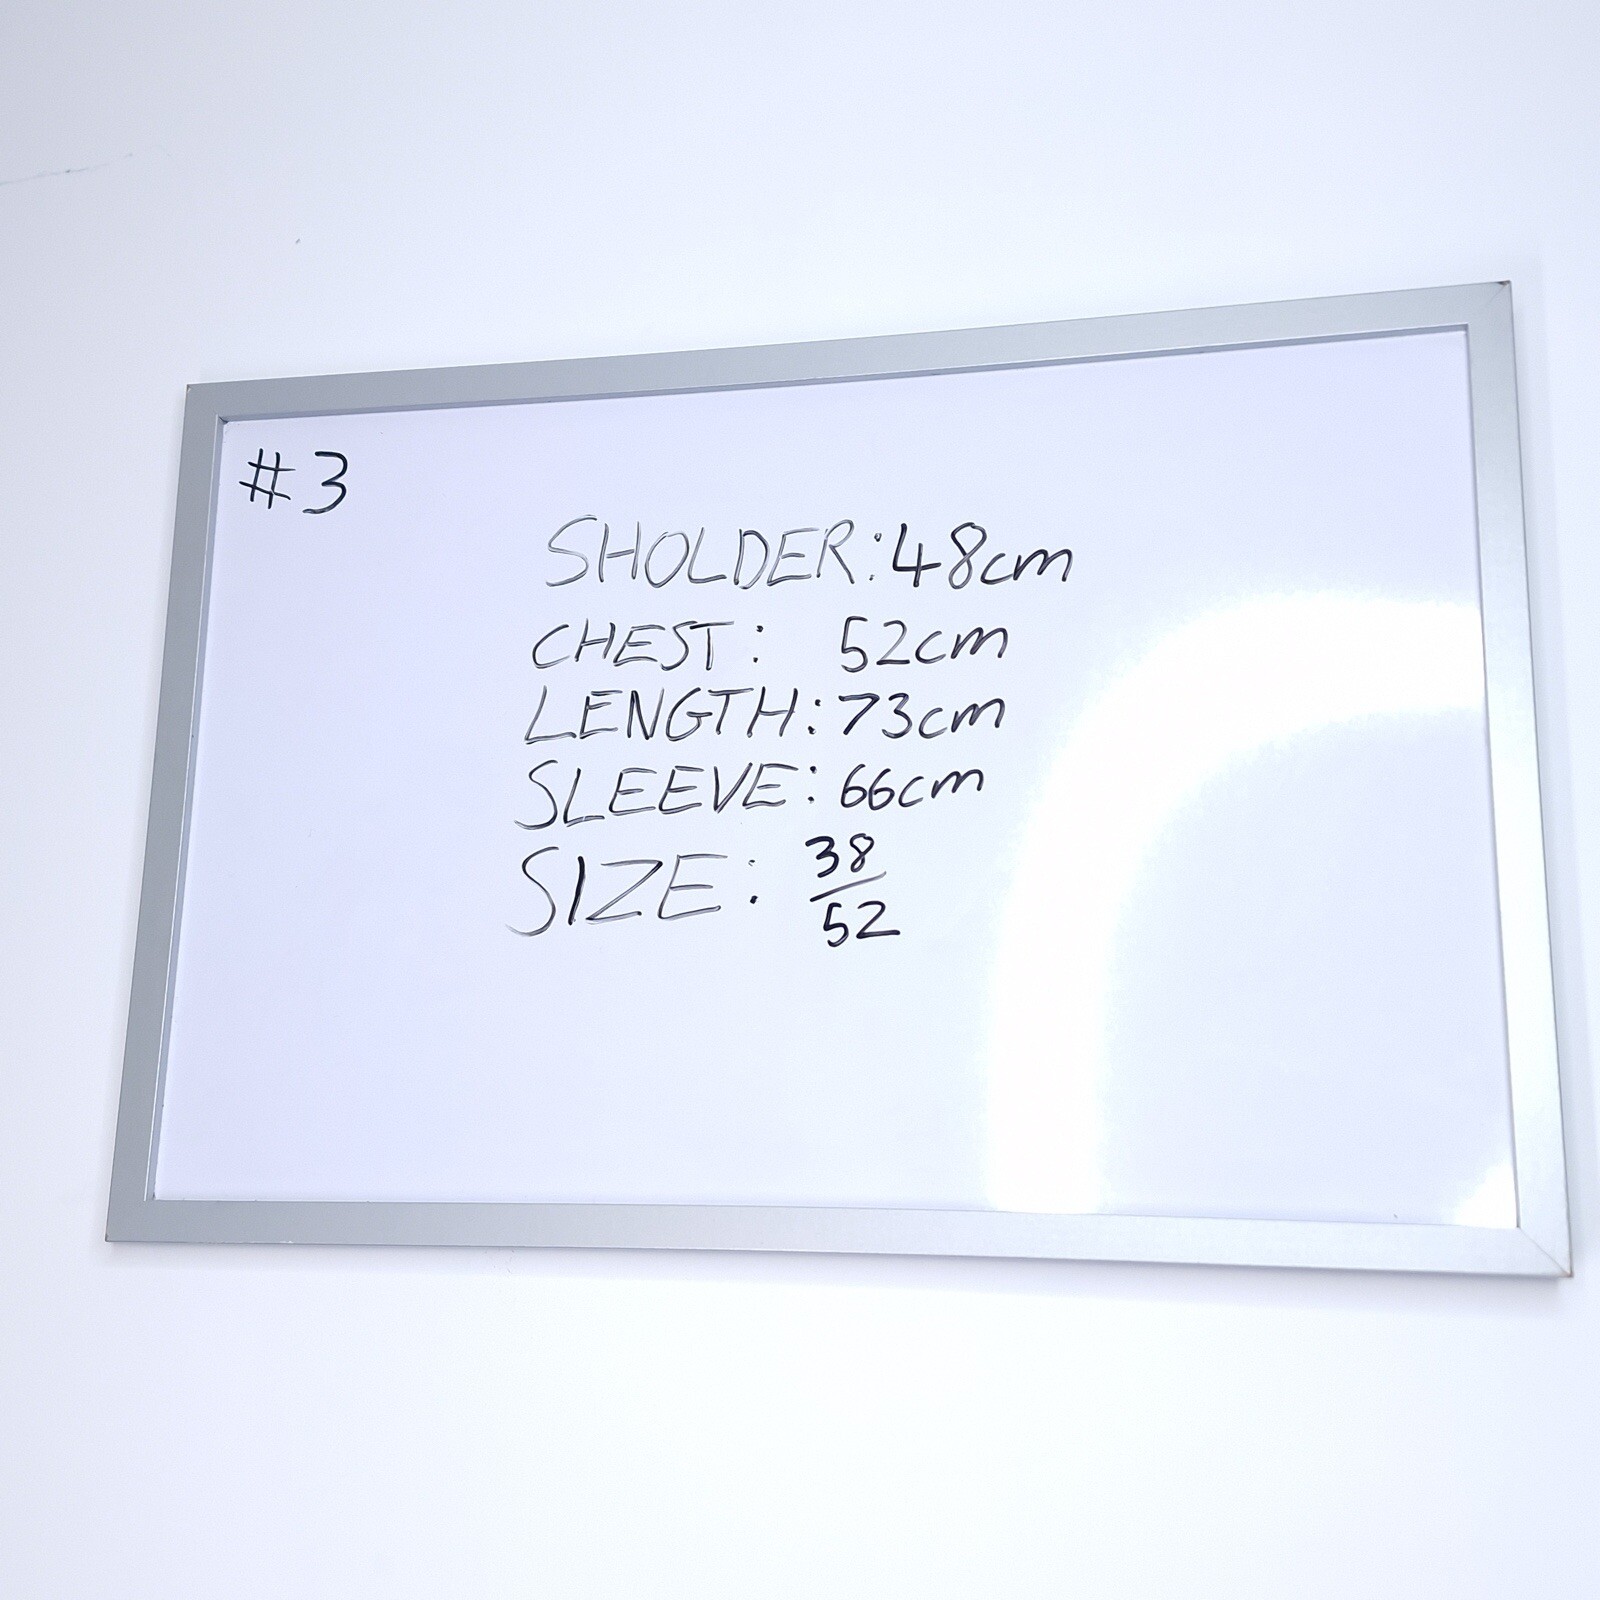 #3
SHOLDER: 48cm
CHEST: 52cm
LENGTH: 73cm
SLEEVE: 66cm
SIZE: 38/52